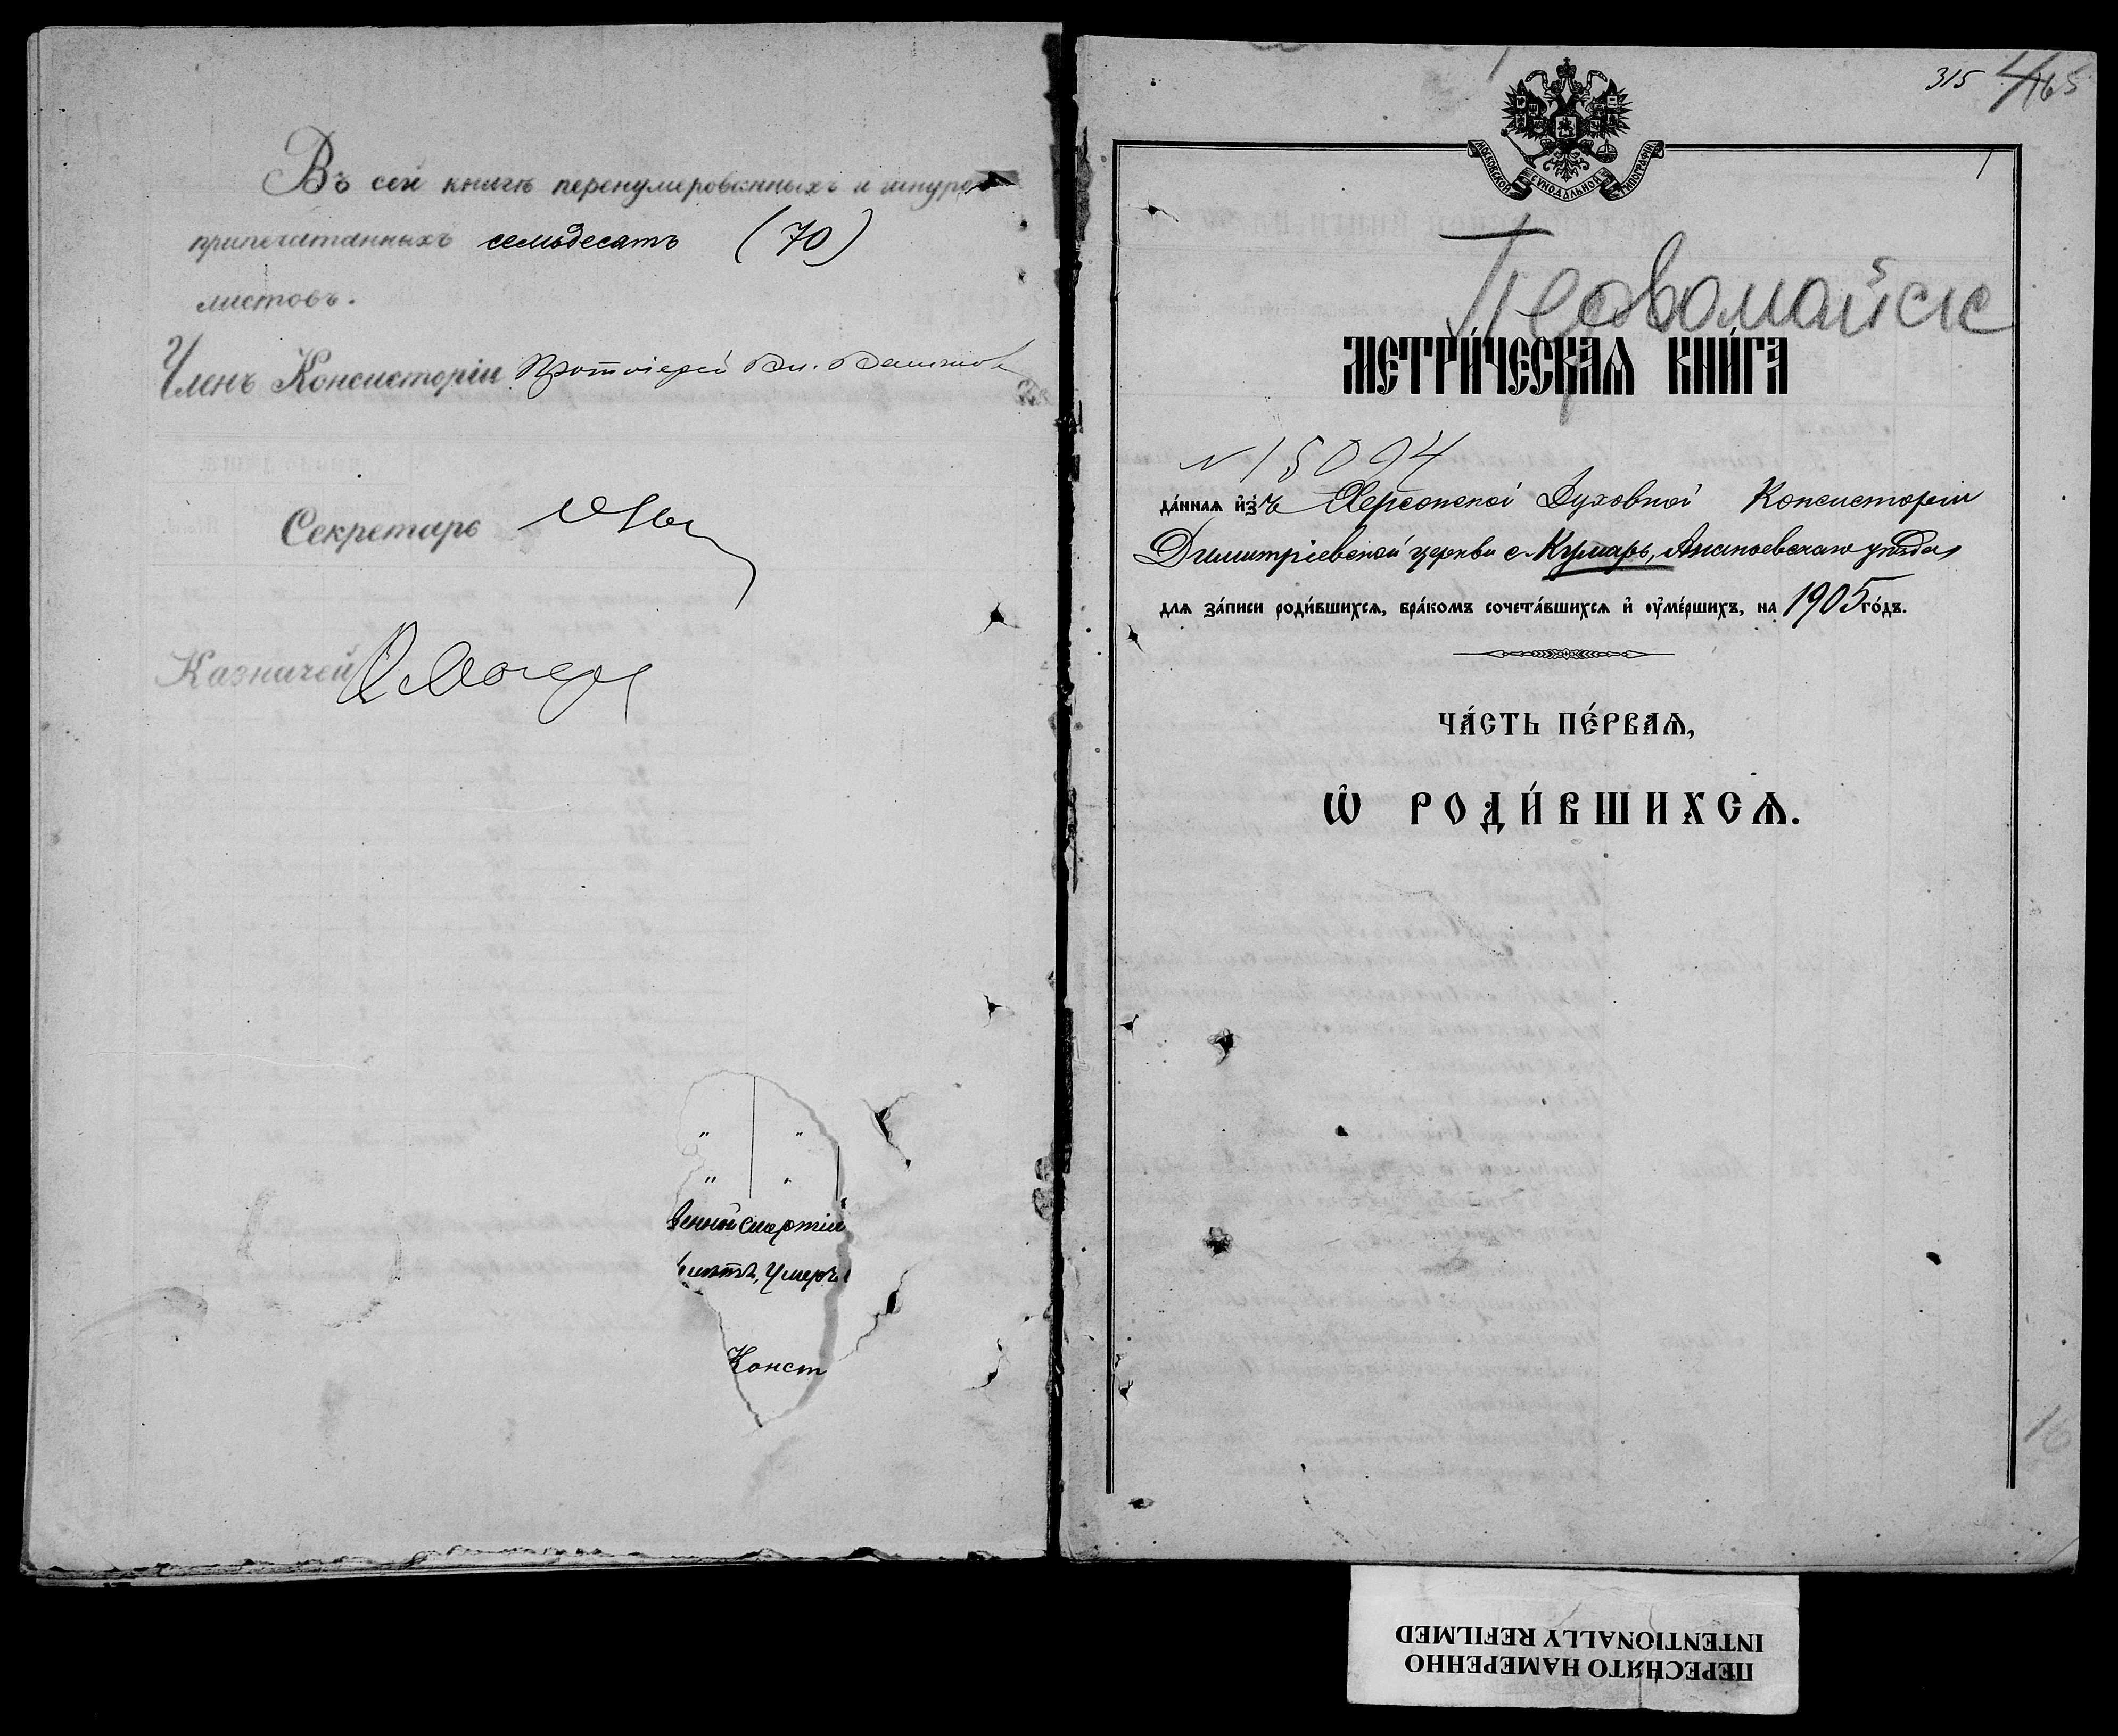 Въ сей книгѣ перенумерованныхъ и шнуро
припечатанныхъ семьдесятъ (70)
листовъ.
Членъ Консисторіи Протоіерей Вл.
Секретарь
Казначей
венной смертію
Умеръ
Конст
315 465
МОСКОВСКОЙ СѴНОДАЛЬНОЙ ТИПОГРАФІИ
1
Первомайск
МЕТРИ́ЧЕСКАѦ КНИ́ГА
N 15094
да́ннаѧ и҆зъ Херсонской Духовной Консисторіи
Димитріевской церкви с. Кумаръ, Ананьевскаго уѣзда,
для за́писи роди́вшихсѧ, бра́комъ сочета́вшихсѧ и҆ оу҆ме́ршихъ, на 1905 го́дъ.
ЧА́СТЬ ПЕ́РВАѦ,
Ѡ҆ РОДИ́ВШИХСѦ.
16
ПЕРЕСНЯТО НАМЕРЕННО
INTENTIONALLY REFILMED